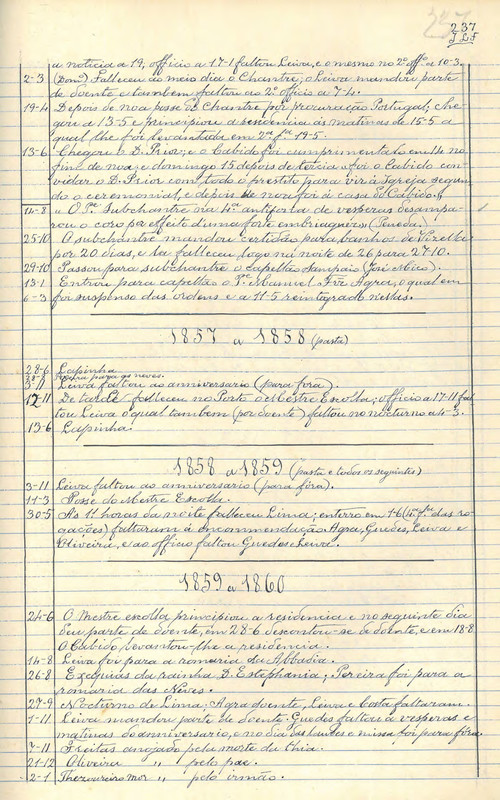 237
J L F
a noticia a 19, officio a 17-1 faltou Leiva, e o mesmo no 2º off. e 10-3.
2-3 (Dom.) Falleceu ao meio dia o Chantre; o Leiva mandou parte
de doente e tambem faltou ao 2º officio a 7-4.
19-4 Depois de noa posse do Chantre por procuração Portugal; che-
gou a 13-5 e principiou a residencia ás matinas de 15-5 a
qual lhe foi levantada em 2ª fª 19-5.
13-6 Chegou o D. Prior; e o Cabido foi cumprimental-o em 14 no
fim de noa; e domingo 15 depois de tercia foi o Cabido con-
vidar o D. Prior com todo o prestito para vir á Igreja segun-
do o ceremonial, e depois de noa foi á casa do Cabido.
14-8 O Pe. Subchantre na 4ª antifona de vesperas desampa-
rou o coro por effeito d'uma forte embriaguez (Peneda).
25-10 O subchantre mandou certidão para banhos de Vizella
por 20 dias, e la falleceu logo na noite de 26 para 27-10.
29-10 Passou para subchantre o capellão Sampaio (José Mico).
13-1 Entrou para capellão o Pe. Manuel Agra, o qual em
6-3 foi suspenso das ordens e a 11-5 reintegrado nellas.
1857 a 1858 (pasta)
28-6 Lapinha
para as neves.
3-11 Leiva faltou ao anniversario (para fóra).
12-11 De tarde falleceu no Porto o Mestre Escolla; officio a 17-11 fal-
tou Leiva o qual tambem (por doente) faltou no nocturno a 4-3.
13-6 Lapinha.
1858 a 1859 (pasta e todos os seguintes)
3-11 Leiva faltou ao anniversario (para fóra).
11-3 Posse do Mestre Escolla.
30-5 Ás 11 horas da noite falleceu Lima; enterro em 1-6 (4ª fª das ro-
gações) faltaram á encommendação Agra, Guedes, Leiva e
Oliveira, e ao officio faltou Guedes e Leiva.
1859 a 1860
24-6 O Mestre escolla principiou a residencia e no seguinte dia
deu parte de doente, em 28-6 descontou-se de doente, e em 18-8
o Cabido levantou-lhe a residencia.
14-8 Leiva foi para a romaria da Abbadia.
26-8 Exequias da rainha D. Estephania; Pereira foi para a
romaria das Neves.
27-9 Nocturno de Lima; Agra doente, Leiva e Costa faltaram.
1-11 Leiva mandou parte de doente. Guedes faltou á vesperas e
matinas do anniversario, e no dia das laudes e missa foi para fóra.
7-11 Freitas anojado pela morte da thia.
21-12 Oliveira " pelo pae.
2-1 Thezoureiro mor " pelo irmão.